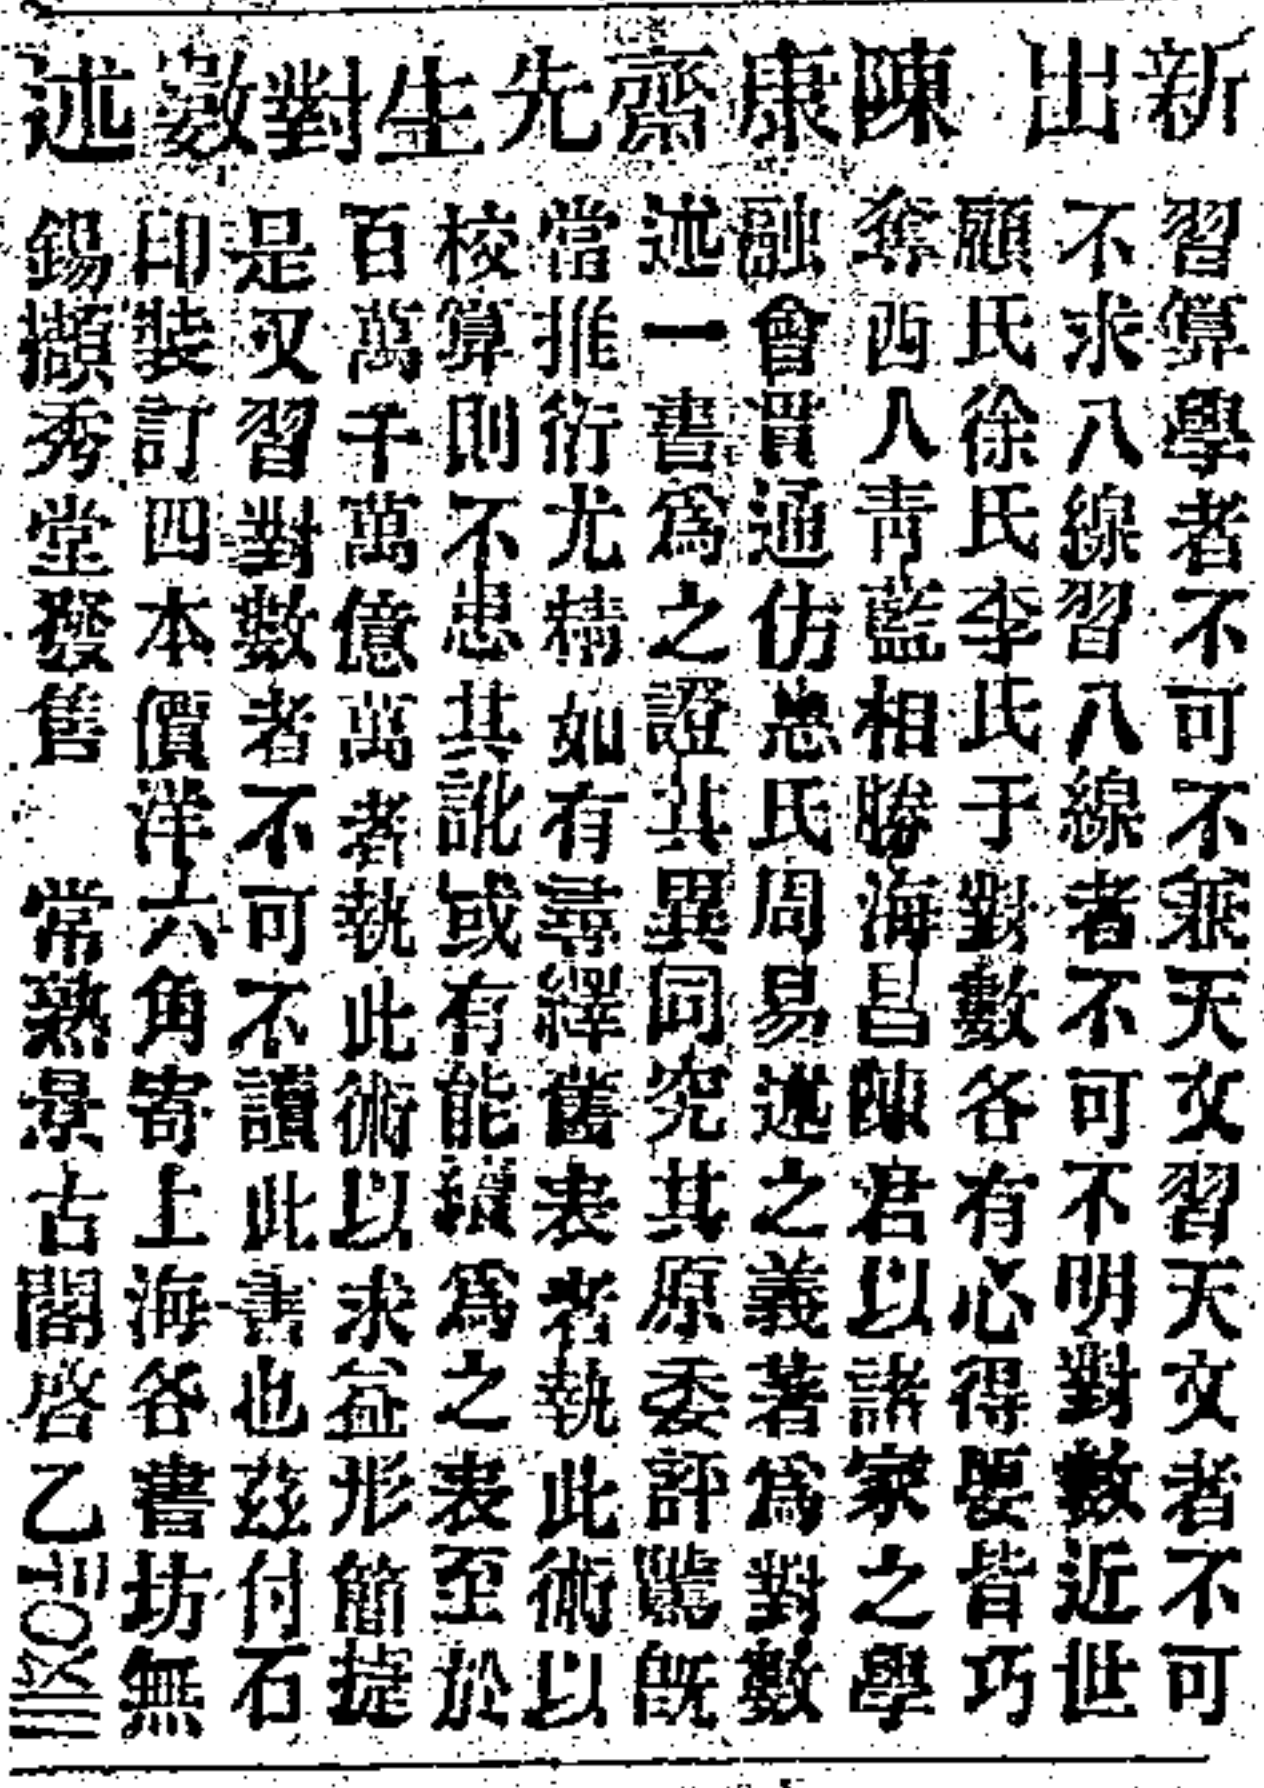 新出 陳康齋先生對數述
習算學者不可不乘天文習天文者不可
不求八線習八線者不可不明對數近世
顧氏徐氏李氏于對數各有心得要皆巧
奪西人青藍相勝海昌陳君以諸家之學
融會貫通仿惠氏周易述之義著爲對數
述一書爲之證其異同究其原委評騭旣
當推衍尤精如有尋繹舊表者執此術以
校算則不患其訛或有能續爲之表至於
百萬千萬億萬者執此術以求益形簡捷
是又習對數者不可不讀此書也茲付石
印裝訂四本價洋六角寄上海各書坊無
錫擷秀堂發售 常熟景古閣啓乙